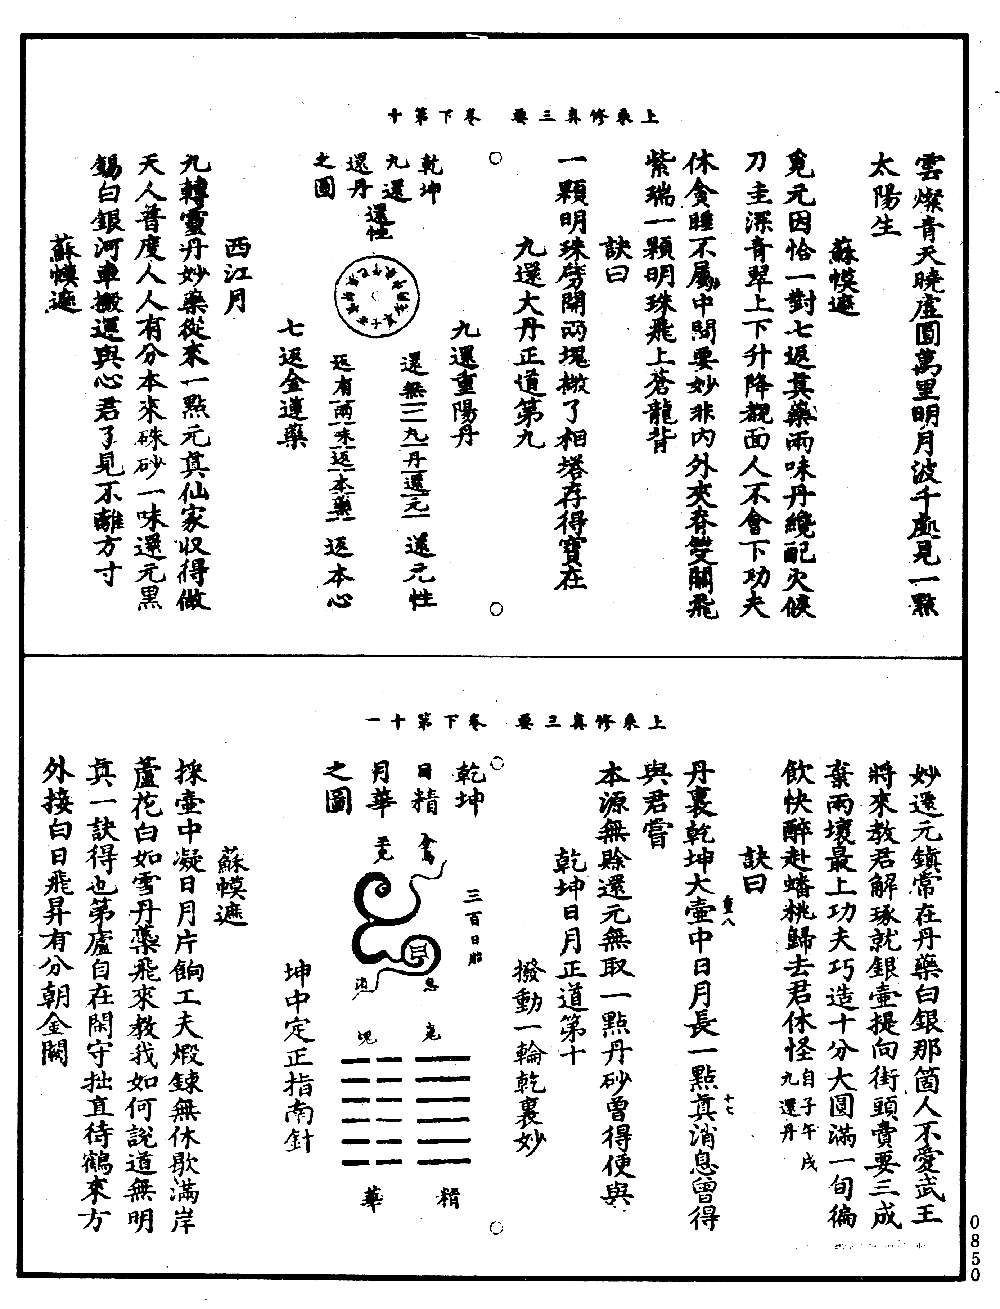 上乘修真三要　卷下第十
雲燦青天曉虛圓萬里明月波千處見一點
太陽生
蘇幙遮
覓元因恰一對七返真藥兩味丹纔配火候
刀圭深青翠上下升降覩面人不會下功夫
休貪睡不屬中間要妙非內外夾脊雙關飛
紫瑞一顆明珠飛上蒼龍背
訣曰
一顆明珠劈開兩塊撇了相塔存得寶在
九還大丹正道第九
九還重陽丹
乾坤
九還
還丹
之圖
還性
還無二二九丹還元一還元性
返有兩味返本藥一返本心
七返金蓮藥
西江月
九轉靈丹妙藥從來一點元真仙家收得做
天人普度人人有分本來硃砂一味還元黑
錫白銀河車搬運與心君了見不離方寸
蘇幙遮
上乘修真三要　卷下第十一
妙還元鎮常在丹藥白銀那箇人不愛武王
將來教君解琢就銀壺提向街頭賣要三成
棄兩壞最上功夫巧造十分大圓滿一旬徧
飲快醉赴蟠桃歸去君休怪自子午戌九還丹
訣曰
丹裏乾坤大壺中日月長一點真消息曾得
與君嘗
重八
十七
本源無賒還元無取一點丹砂曾得便與
乾坤日月正道第十
撥動一輪乾裏妙
乾坤
日精
月華
之圖
金烏
玉兔
三百日胎
日
魂
精
華
坤中定正指南針
蘇幙遮
採壺中凝日月片餉工夫煅鍊無休歇滿岸
蘆花白如雪丹藥飛來教我如何說道無明
真一訣得也第廬自在閑守拙直待鶴來方
外接白日飛昇有分朝金闕
0850